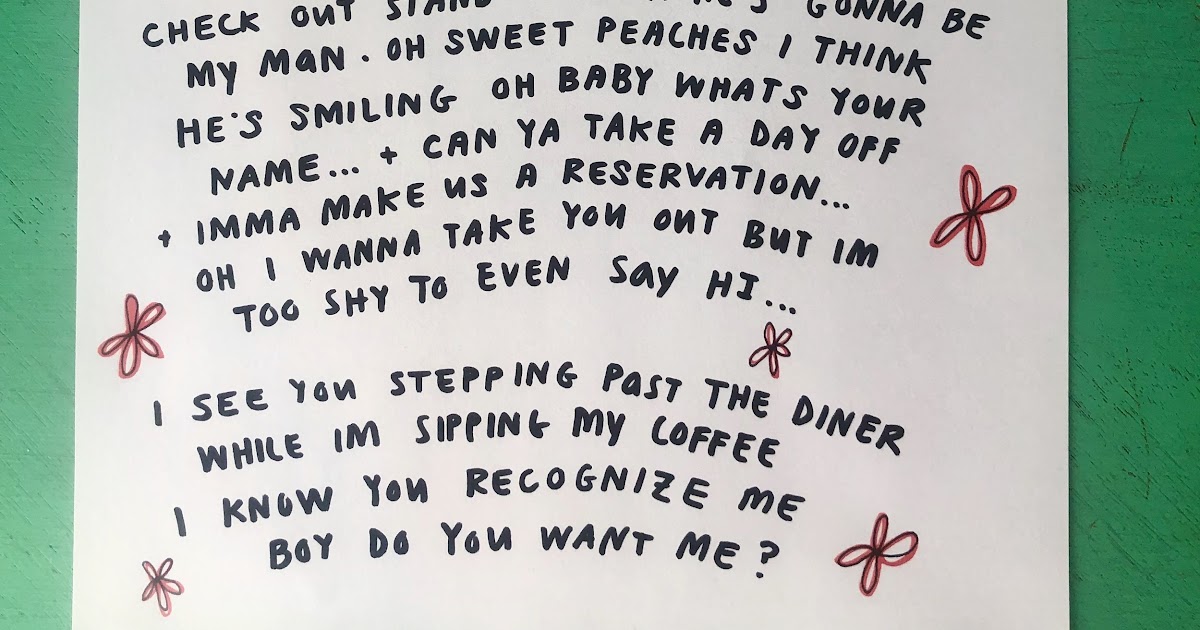 CHECK OUT STAND GONNA BE
MY MAN. OH SWEET PEACHES I THINK
HE'S SMILING OH BABY WHATS YOUR
NAME... + CAN YA TAKE A DAY OFF
+ IMMA MAKE US A RESERVATION...
OH I WANNA TAKE YOU OUT BUT IM
TOO SHY TO EVEN SAY HI...
I SEE YOU STEPPING PAST THE DINER
WHILE IM SIPPING MY COFFEE
I KNOW YOU RECOGNIZE ME
BOY DO YOU WANT ME?